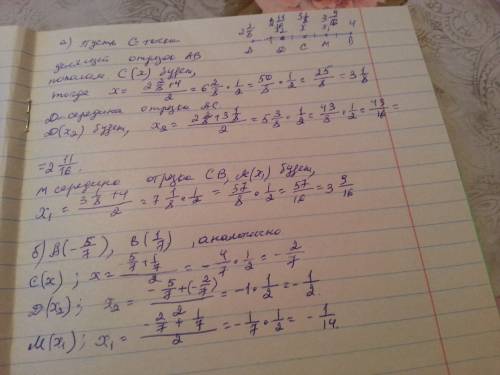 а) Пусть С точка
делящий отрезок АВ
пополам С(x) будет,
тогда x = (2 2/8 + 4)/2 = 6 2/8 · 1/2 = 50/8 · 1/2 = 25/8 = 3 1/8
Д-середина отрезка АС
Д(x₂) будет, x₂ = (2 2/8 + 3 1/8)/2 = 5 3/8 · 1/2 = 43/8 · 1/2 = 43/16 =
= 2 11/16.
М середина отрезка СВ, М(x₁) будет,
x₁ = (3 1/8 + 4)/2 = 7 1/8 · 1/2 = 57/8 · 1/2 = 57/16 = 3 9/16
б) А(-5/7), В(1/7), аналогично
С(x); x = (-5/7 + 1/7)/2 = -4/7 · 1/2 = -2/7
Д(x₂); x₂ = (-5/7 + (-2/7))/2 = -1 · 1/2 = -1/2
М(x₁); x₁ = (-2/7 + 1/7)/2 = -1/7 · 1/2 = -1/14